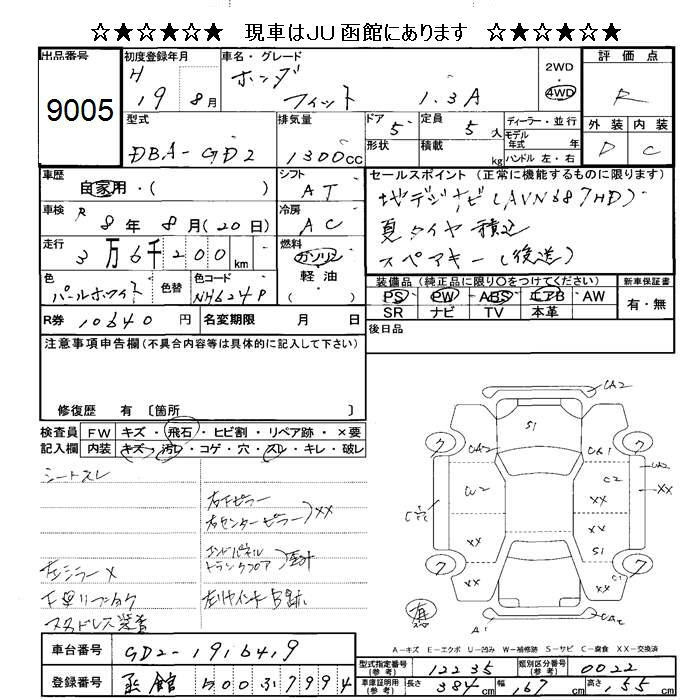 ☆★☆★☆★ 現車はJU函館にあります ☆★☆★☆★
出品番号 9005
初度登録年月 H 19 8月
車名・グレード ホンダ フィット 1.3A
2WD 4WD
評価点 R
型式 DBA-GD2
排気量 1300cc
ドア 5 形状
定員 5人 積載 kg
ディーラー・並行
モデル年式 年
ハンドル 左・右
外装 D 内装 C
車歴 自家用・( )
シフト AT
セールスポイント (正常に機能するものに限ります)
地デジナビ(AVN687HD)
夏タイヤ積込
スペアキー(後送)
車検 R 8年 8月(20日)
冷房 AC
走行 3万6千200km
燃料 ガソリン 軽油 ( )
色 パールホワイト 色替
色コード NH624P
装備品 (純正品に限り○をつけてください) 新車保証書
PS PW ABS エアB AW 有・無
SR ナビ TV 本革
R券 10640円 名変期限 月 日
後日品
注意事項申告欄(不具合内容等は具体的に記入して下さい)
修復歴 有 〔箇所 〕
検査員記入欄
FW キズ・飛石・ヒビ割・リペア跡・×要
内装 キズ・汚レ・コゲ・穴・スレ・キレ・破レ
シートスレ
右センターピラー XX
エンドパネル
トランクフロア
左ミラーX
スタドレス装着
CA2
S1
ワ ワ
CA2 CA1
CA2
W2 C2
XX
XX XX
XX S1
XX XX C1
ワ ワ
A1 CA2
有
A-キズ E-エクボ U-凹み W-補修跡 S-サビ C-腐食 XX-交換済
車台番号 GD2-1916419
登録番号 函館 500 す 7994
型式指定番号(参考) 12235 類別区分番号(参考) 0022
車庫証明用(参考) 長さ 384cm 幅 167cm 高さ 155cm